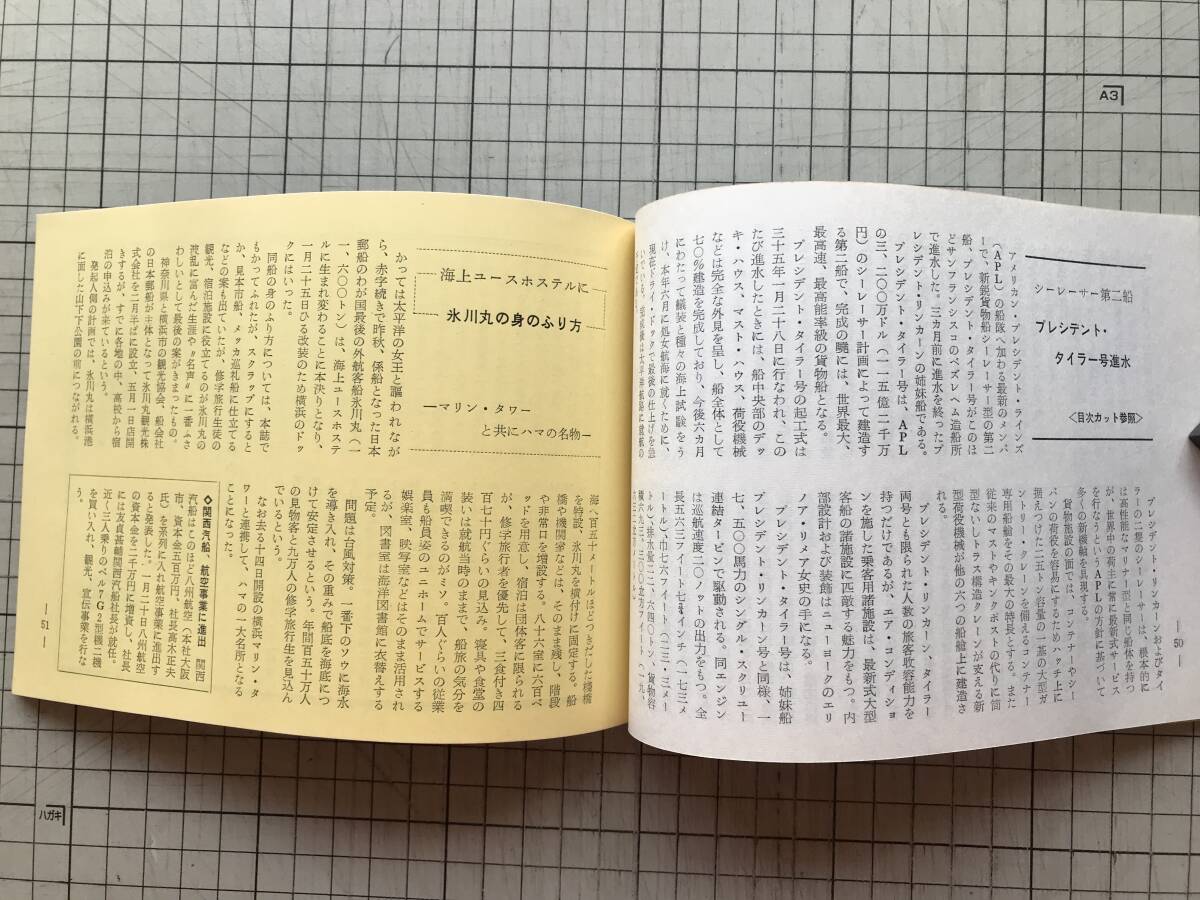 A3
ハガキ
シーレーサー第二船
プレシデント・
タイラー号進水
〈目次カット参照〉
アメリカン・プレシデント・ラインズ
(APL)の船隊へ加わる最新のメンバ
ーで、新鋭貨物船シーレーサー型の第二
船、プレシデント・タイラー号がこのほ
どサンフランシスコのベズレヘム造船所
で進水した。三カ月前に進水を終ったプ
レシデント・リンカーンの姉妹船である。
プレシデント・タイラー号は、APL
の三、二〇〇万ドル(一一五億二千万
円)のシーレーサー計画によって建造す
る第二船で、完成の暁には、世界最大、
最高速、最高能率級の貨物船となる。
プレシデント・タイラー号の起工式は
三十五年一月二十八日に行なわれ、この
たび進水したときには、船中央部のデッ
キ・ハウス、マスト・ハウス、荷役機械
などは完全な外見を呈し、船全体として
七〇%建造を完成しており、今後六カ月
にわたって艤装と種々の海上試験をう
け、本年六月に処女航海に就くために、
現在ドライ・ドックで最後の仕上げを急
プレシデント・リンカーンおよびタイ
ラーの二隻のシーレーサーは、根本的に
は高性能なマリナー型と同じ船体を持つ
が、世界中の荷主に常に最新式サービス
を行なうというAPLの方針に基づいて
多くの新機軸を具現する。
貨物施設の面では、コンテナーやシー
バンの荷役を容易にするためハッチ上に
据えつけた二五トン容量の二基の大型ガ
ントリー・クレンを備えるコンテナー
専用船艙をその最大の特長とする。また
従来のマストやキングポストの代りに筒
型ないしトラス構造クレーンが支える新
型荷役機械が他の六つの船艙上に建造さ
れる。
プレシデント・リンカーン、タイラー
両号とも限られた人数の旅客収容能力を
持つだけであるが、エア・コンディショ
ンを施した乗客用諸施設は、最新式大型
客船の諸施設に匹敵する魅力をもつ。内
部設計および装飾はニューヨークのエリ
ノア・リメア女史の手になる。
プレシデント・タイラー号は、姉妹船
プレシデント・リンカーン号と同様、一
七、五〇〇馬力のシングル・スクリュー
連結タービンで駆動される。同エンジン
は巡航速度二〇ノットの出力をもつ。全
長五六三フイート七¾インチ(一七三メ
ートル)、巾七六フイート(二三・三メー
トル)、排水量二二、六四〇トン、貨物容
— 50 —
海上ユースホステルに
氷川丸の身のふり方
—マリン・タワー
と共にハマの名物—
かつては太平洋の女王と謳われなが
ら、赤字続きで昨秋、係船となった日本
郵船のわが国最後の外航客船氷川丸(一
一、六〇〇トン)は、海上ユースホステ
ルに生まれ変わることに本決りとなり、
一月二十五日ひる改装のため横浜のドッ
クにはいった。
同船の身のふり方については、本誌で
もかつてふれたが、スクラップにすると
か、見本市船、メッカ巡礼船に仕立てる
などの案も出ていたが、修学旅行生徒の
観光、宿泊施設に役立てるのが氷川丸の
波乱に富んだ生涯や〝名声〟に一番ふさ
わしいとして最後の案がきまったもの。
神奈川県と横浜市の観光協会、船会社
の日本郵船が主体となって氷川丸観光株
式会社を二月半ばに設立、五月一日店開
きするが、すでに各地の中、高校から宿
泊の申込みが来ているという。
発起人側の計画では、氷川丸は横浜港
に面した山下公園の前につながれる。
海へ百五十メートルほどつきだした桟橋
を特設、氷川丸を横付けに固定する。船
橋や機関室などは、そのまま残し、階段
や非常口を増設する。八十六室に六百ベ
ッドを用意し、宿泊は団体客に限られる
が、修学旅行者を優先して、三食付き四
百七十円ぐらいの見込み。寝具や食堂の
装いは就航当時のままで、船旅の気分を
満喫できるのがミソ。百人ぐらいの従業
員も船員姿のユニホームでサービスする
娯楽室、映写室などはそのまま活用され
るが、図書室は海洋図書館に衣替えする
予定。
問題は台風対策。一番下のソウに海水
を導き入れ、その重みで船底を海底につ
けて安定させるという。年間百五十万人
の見物客と九万人の修学旅行生を見込ん
でいるという。
なお去る十四日開設の横浜マリン・タ
ワーと連携して、ハマの一大名所となる
ことになった。
◇関西汽船、航空事業に進出 関西
汽船はこのほど八州航空(本社大阪
市、資本金五百万円、社長高木正夫
氏)を系列に入れ航空事業に進出す
ると発表した。一月二十日八州航空
には友貞甚輔関西汽船社長が就任。
の資本金を二千万円に増資し、社長
近く三人乗りのベル7G2型機二機
を買い入れ、観光、宣伝事業を行な
う。
— 51 —